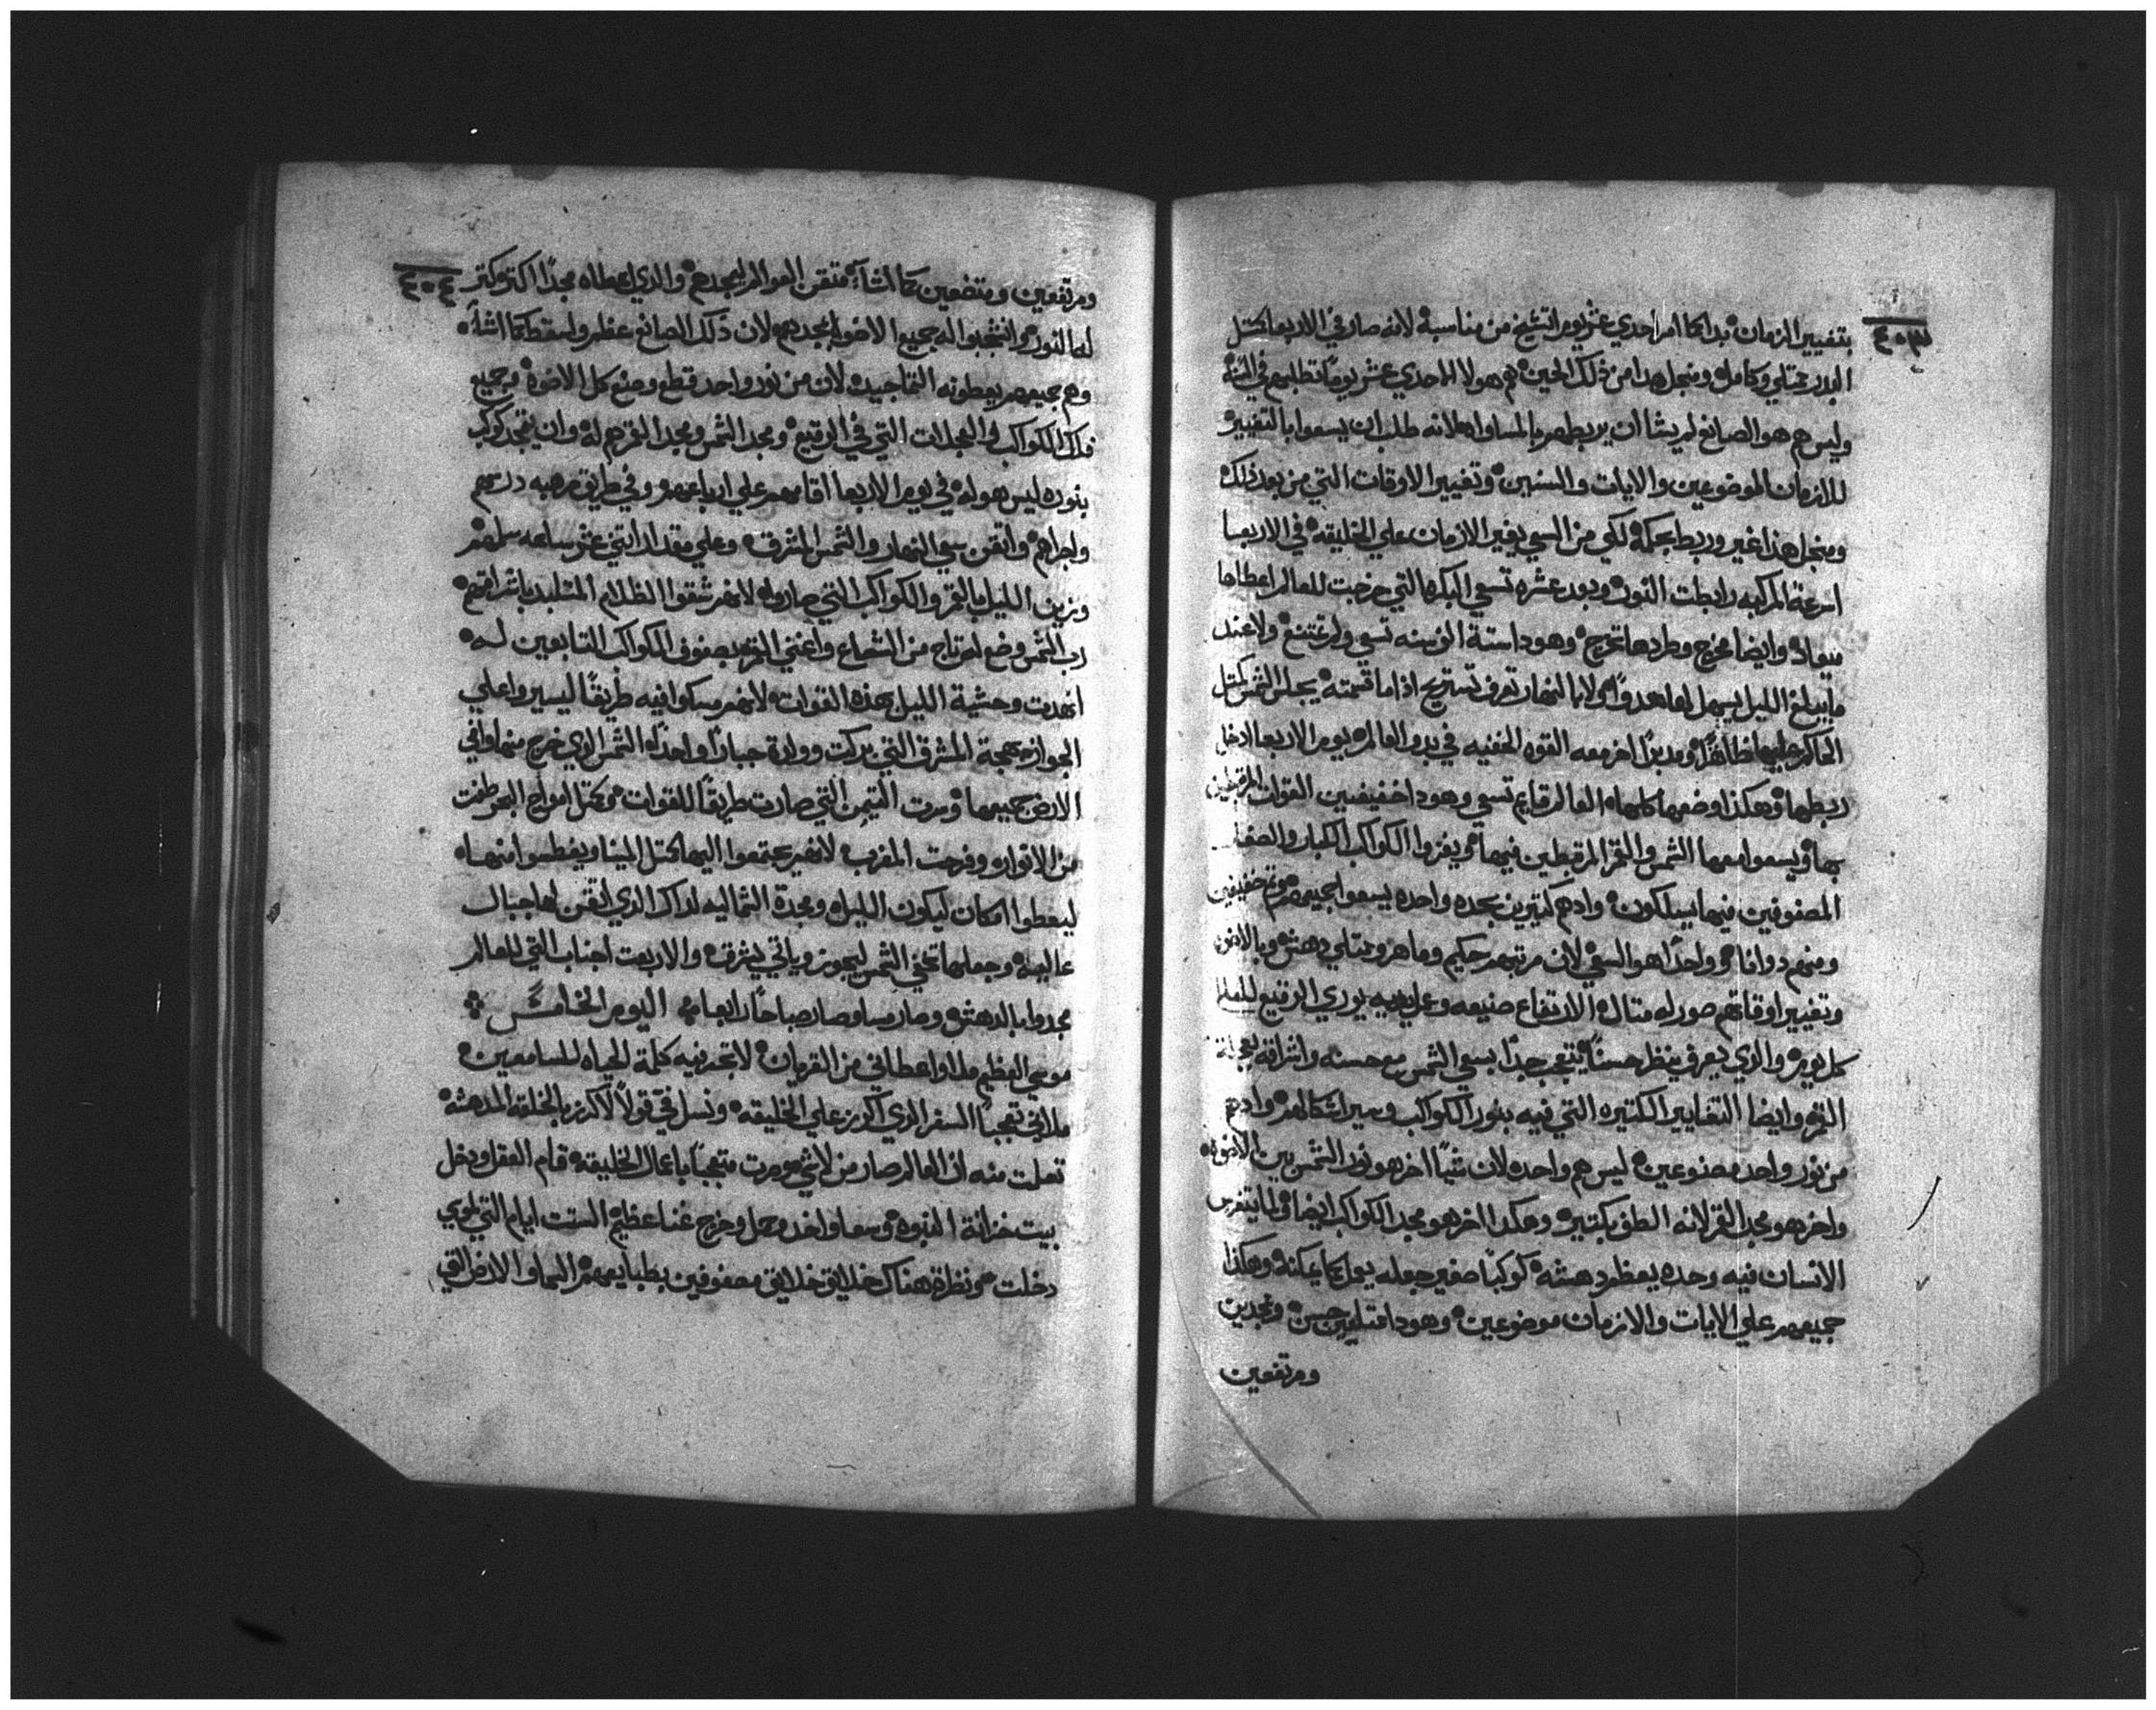 ٤٠٣
بتغيير الزمان بدا كما امر احدي عشر يوم اتشيخ من مناسبة لانه صار في الاربعا كمتل
البدر ممتلي وكامل ومنجل هدا من ذلك الحين هم هولا الاحدي عشر يومًا تطلبهم في السنة
وليس هم هو الصانع لم يشا ان يربطهم بالمساواه لانه طلب ان يسعوا بالتغيير
للازمان الموضوعين والايات والسنين وتغيير الاوقات التي من بعد ذلك
ومنجل هذا غير وربط بحكمة لكي من السعي يغير الازمان علي الخليقه في الاربعا
اسرعة المركبه رابطت النور وبعد عشره تسعي البكره التي خرجت للعالم اعطاها
ميعاد وايضا تخرج وطردها تخرج وهودا ستة الف سنه تسعي ولم تمتنع ولا عند
ما يبلغ الليل يسهل لها هدوًا ولا بالنهار تعرف تستريح اذا ما قسمته يجلس الشمس كمتل
الحاكم عليها ظاهرًا ومدبرًا اخر معه القوه الخفيه في بدو العالم يوم الاربعا ادخل
ربطها وهكذا وضعها كلها العالم قايم تسعي وهودا خفيفين القوات المرتبطين
بها ويسعوا معها الشمس والقمر المرتبطين فيها ويفزوا الكواكب الكبار والصغار
المصفوفين فيها يسلكون وادهم كتيرين بحده واحده يسعوا جميعهم وتم خفيفين
ومنهم دوانا وواحدًا هو السعي لان مرتبهم حكيم وماهر وممتلي دهش وبالاضوا
وتغيير اوقاتهم صور له متال الارتفاع صنيعه وعليه يوري الرقيع للعالم
كل يوم والذي يعرف ينظر حسنًا يتعجب جدًا بسعي الشمس مع حسنه واشراقه بعجلة
القمر وايضا التغايير الكتيره التي فيه بنور الكواكب وميراشكالهم وادهم
من نور واحد مصنوعين ليس هم واحده لان شيًا اخر هو نور الشمس بين الاضوا
واخر هو مجد القمر لانه الطف بكتير وهكدا اخر هو مجد الكواكب ايضا ولما يتفرس
الانسان فيه وحده يعظم دهشه كوكبًا صغير جعله يعمل كما يمكنه وهكذا
جميعهم علي الايات والازمان موضوعين وهودا متلمين حسن ونجدين
ومرتفعين
٤٠٤
ومرتفعين ومتضعين كما اشاء متقن العوالم ليمجدهم والذي اعطاه مجدًا اكتر وكتر
له النور وانتخبوا له جميع الاضوا بمجدهم لان ذلك الصانع عظم ولسقط كما اشا
وهم جميعهم يعطونه التماجيد لان من نور واحد قطع وصنع كل الاضوا وجميع
فلك الكواكب والعجلات التي في الرقيع ومجد الشمس ومجد القمر هم له وان يتمجد كوكب
بنوره ليس هو له في يوم الاربعا اقامهم علي ارباعهم وفي طريق مرهبه درسهم
واجراهم واتقن سعي النهار والشمس المشرق وعلي مقدار اتني عشر ساعه سلمهم
وزين الليل بالقمر والكواكب التي صاروا له لانهم شقوا الظلام المتلبد باشراقهم
رب الشمس وضع لهم تاج من الشعاع واغني القمر بصفوف الكواكب التابعين له
انهدت وحشية الليل بهذه القوات لانهم سكوا فيه طريقًا ليسيروا علي
الجواز بهجة المشرق التي بركت وولدة جبارًا واحدًا الشمس الذي خرج منها وافي
الارض جميعها وسرت التيمن التي صارت طريقًا للقوات وكمتل امواج البحر طفت
من الانوار وفرحت المغرب لانهم يجتمعوا اليها كمتل المينا ويغطسوا منها
ليعطوا امكان ليكون الليل ومجدة الشماليه لداك الذي اتقن لها جبال
عاليه وجعلها تخفي الشمس ليجوز وياتي يشرق والاربعت اجناب التي للعالم
مجدوا بالدهش وصار مسا وصار صباحًا رابعا اليوم الخامس
موسي العظيم ملاوا عطاني من القربان لا تجد فيه كلمة الحياه للسامعين
ملاني تعجبًا السفر الذي اكرز علي الخليقه ونسل فيّ قولًا لاكرز بالخلقه المدهشه
تعلت منه اذ العالم صار من لا شي وصرت متعجبًا باعمال الخليقه قام العقل ودخل
بيت خزانة النبوه وسعا واخد وحمل وخرج غنا عظيم الستت ايام التي لموسي
دخلت ونظرة هناك خلايق خلايق مصفوفين بطبايعهم السما والارض التي